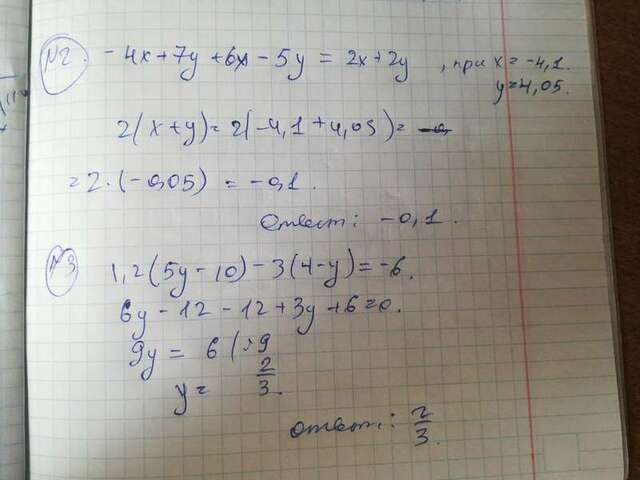 №2. -4x+7y+6x-5y = 2x+2y , при x = -4,1.
y=4,05.
2(x+y)=2(-4,1+4,05)=
=2·(-0,05) = -0,1.
Ответ: -0,1.
№3 1,2(5y-10)-3(4-y)=-6.
6y-12-12+3y+6=0.
9y = 6 (:9
y = 2/3.
Ответ: 2/3.